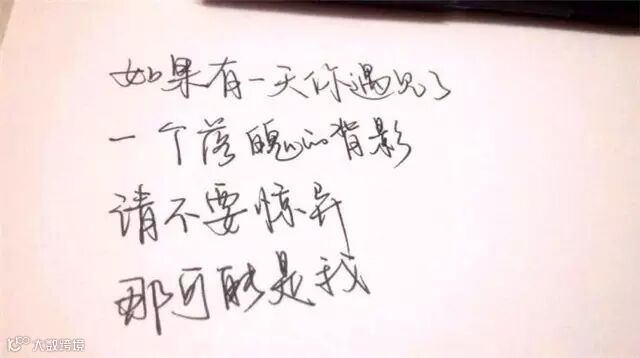 如果有一天你遇见了
一个落魄的背影
请不要惊异
那可能是我
大数跨境